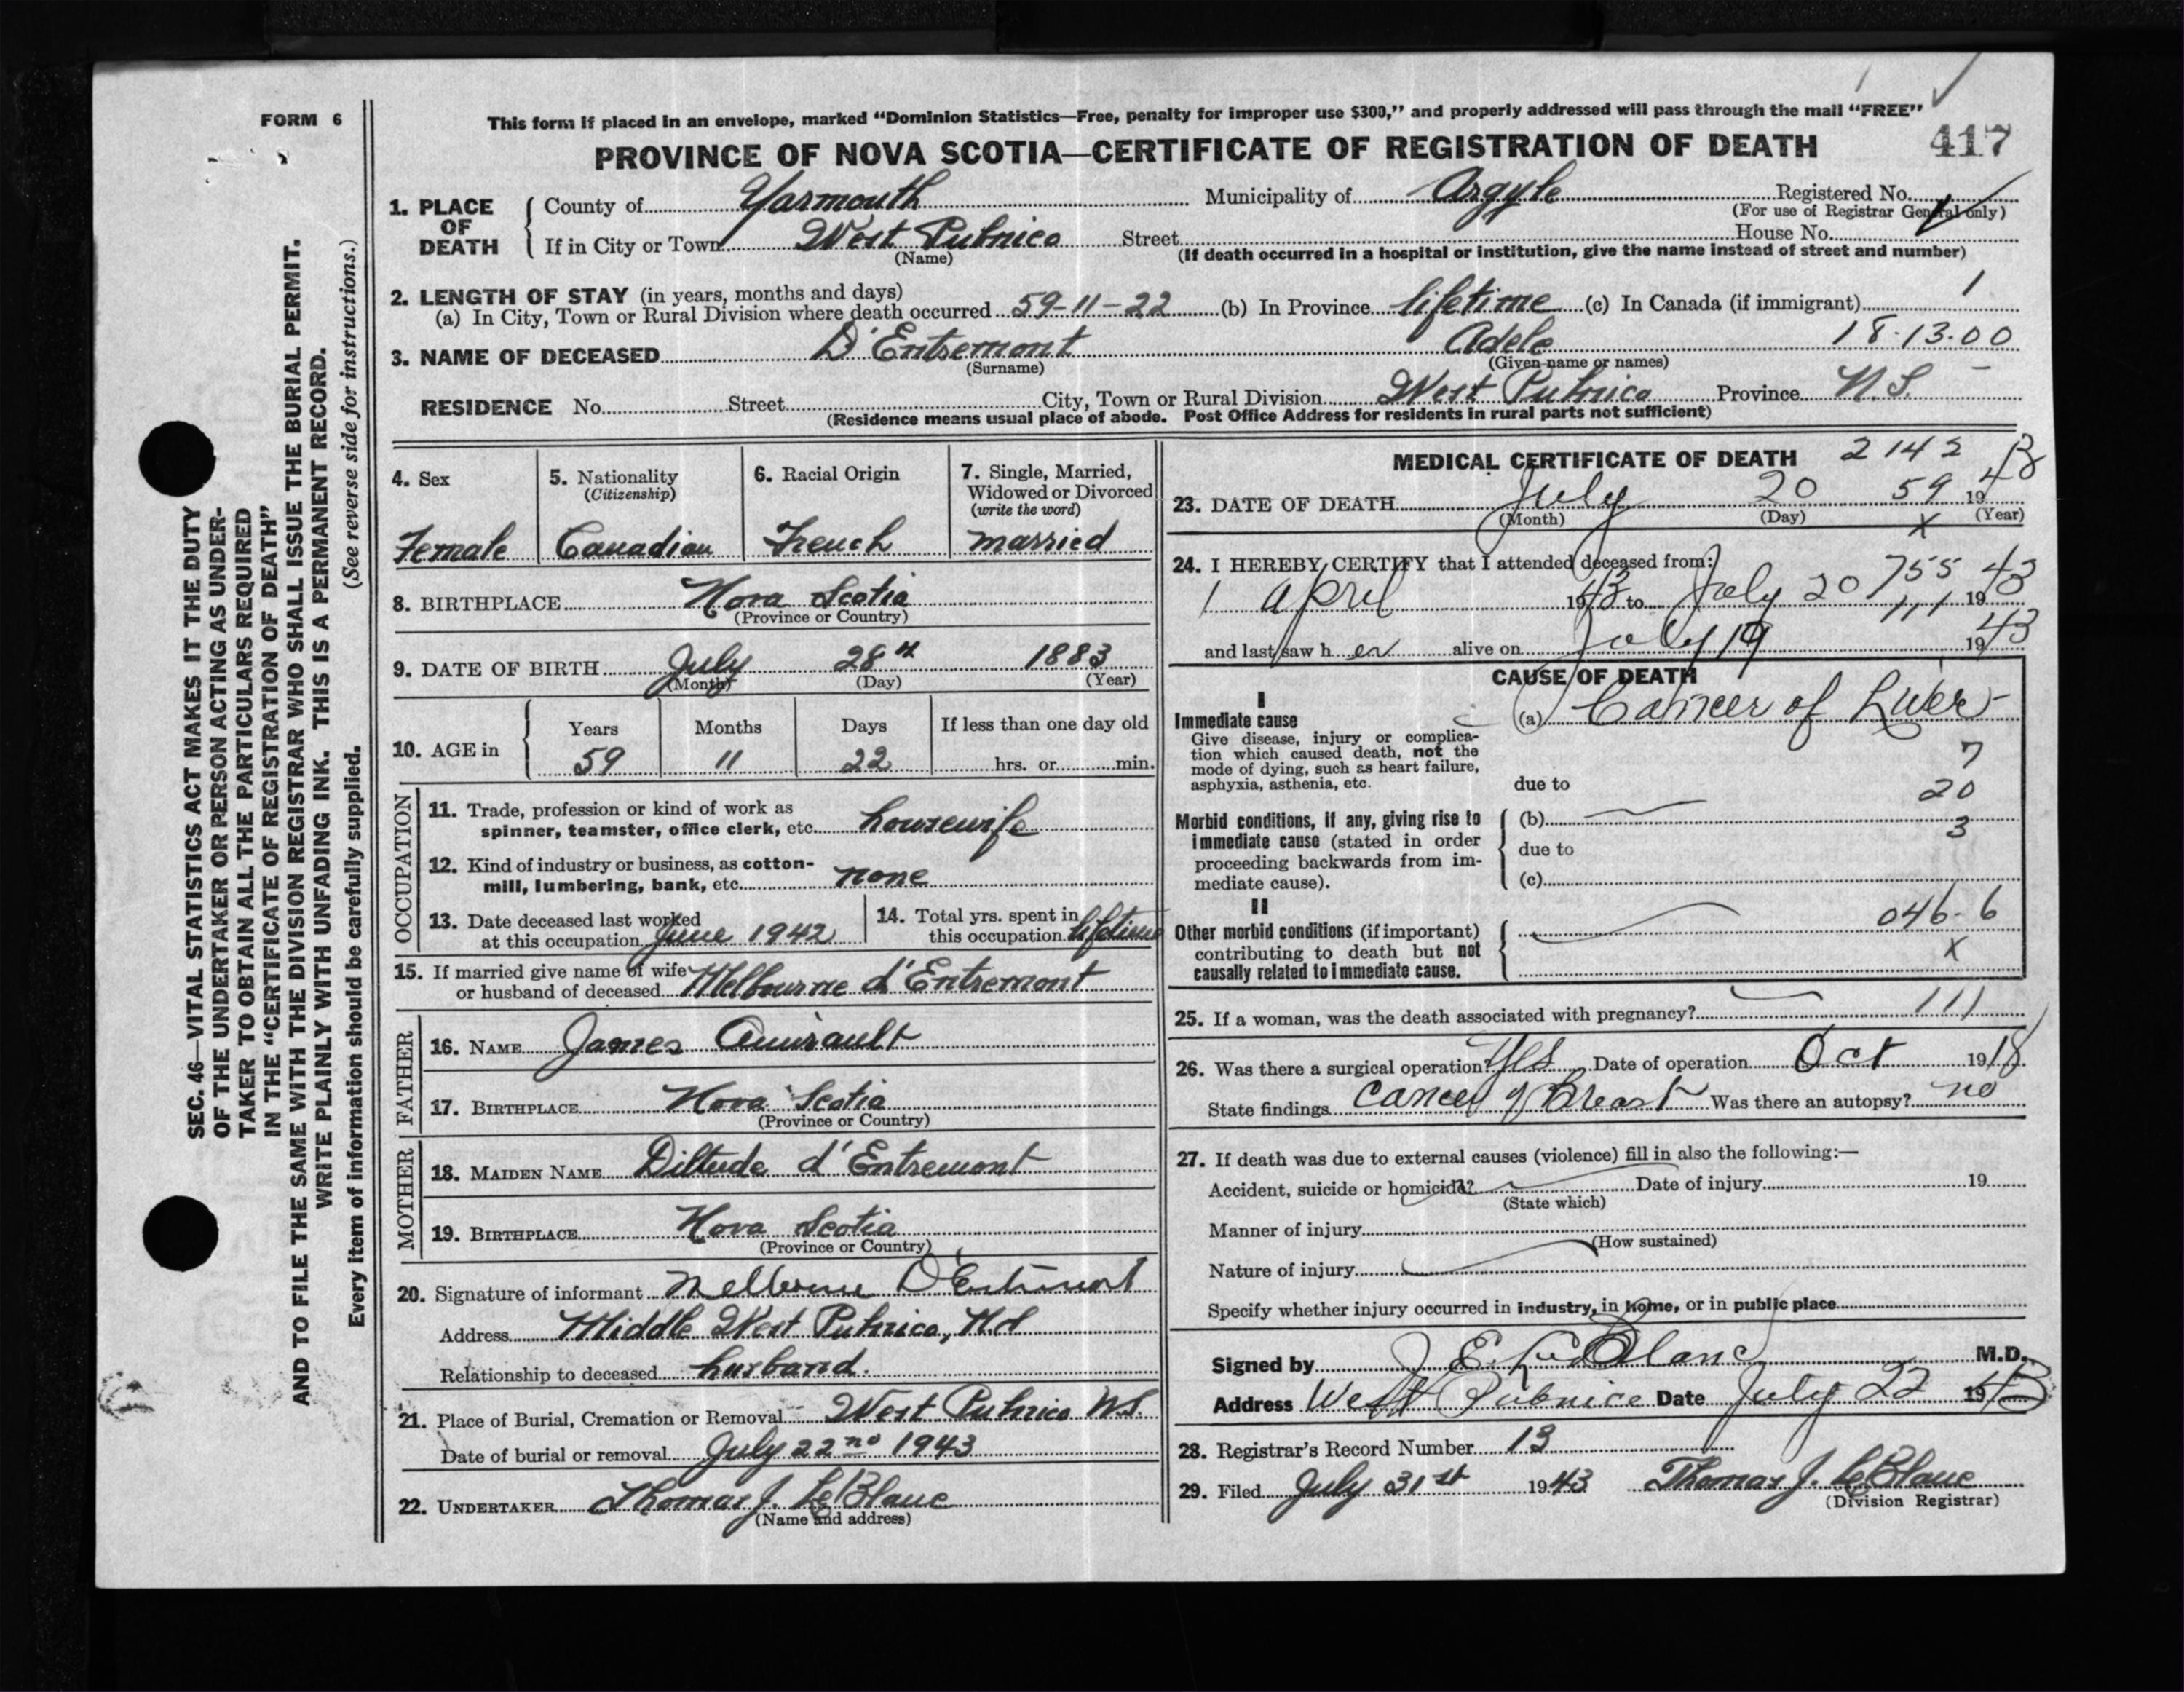 FORM 6
This form if placed in an envelope, marked "Dominion Statistics—Free, penalty for improper use $300," and properly addressed will pass through the mail "FREE"
PROVINCE OF NOVA SCOTIA—CERTIFICATE OF REGISTRATION OF DEATH 417
SEC. 46—VITAL STATISTICS ACT MAKES IT THE DUTY
OF THE UNDERTAKER OR PERSON ACTING AS UNDER-
TAKER TO OBTAIN ALL THE PARTICULARS REQUIRED
IN THE "CERTIFICATE OF REGISTRATION OF DEATH"
AND TO FILE THE SAME WITH THE DIVISION REGISTRAR WHO SHALL ISSUE THE BURIAL PERMIT.
WRITE PLAINLY WITH UNFADING INK. THIS IS A PERMANENT RECORD.
Every item of information should be carefully supplied. (See reverse side for instructions.)
1. PLACE OF DEATH County of Yarmouth Municipality of Argyle Registered No.
(For use of Registrar General only)
If in City or Town West Pubnico Street House No.
(Name) (If death occurred in a hospital or institution, give the name instead of street and number)
2. LENGTH OF STAY (in years, months and days) 1
(a) In City, Town or Rural Division where death occurred 59-11-22 (b) In Province lifetime (c) In Canada (if immigrant)
3. NAME OF DECEASED D'Entremont Adele 18-13-00
(Surname) (Given name or names)
RESIDENCE No. Street City, Town or Rural Division West Pubnico Province N.S.
(Residence means usual place of abode. Post Office Address for residents in rural parts not sufficient)
4. Sex 5. Nationality (Citizenship) 6. Racial Origin 7. Single, Married, Widowed or Divorced (write the word)
Female Canadian French married
8. BIRTHPLACE Nova Scotia
(Province or Country)
9. DATE OF BIRTH July 28th 1883
(Month) (Day) (Year)
10. AGE in Years Months Days If less than one day old
59 11 22 hrs. or min.
OCCUPATION
11. Trade, profession or kind of work as
spinner, teamster, office clerk, etc. housewife
12. Kind of industry or business, as cotton-
mill, lumbering, bank, etc. none
13. Date deceased last worked
at this occupation June 1942
14. Total yrs. spent in
this occupation lifetime
15. If married give name of wife
or husband of deceased Melbourne d'Entremont
FATHER
16. NAME James Amirault
17. BIRTHPLACE Nova Scotia
(Province or Country)
MOTHER
18. MAIDEN NAME d'Entremont
19. BIRTHPLACE Nova Scotia
(Province or Country)
20. Signature of informant Melbourne D'Entremont
Address Middle West Pubnico, N.S
Relationship to deceased husband.
21. Place of Burial, Cremation or Removal West Pubnico N.S.
Date of burial or removal July 22nd 1943
22. UNDERTAKER Thomas J. LeBlanc
(Name and address)
MEDICAL CERTIFICATE OF DEATH 2142
23. DATE OF DEATH July 20 59 1943
(Month) (Day) (Year)
x
24. I HEREBY CERTIFY that I attended deceased from:
1 April 1943 to July 20 755 1943
111
and last saw her alive on July 19 1943
CAUSE OF DEATH
I
Immediate cause (a) Cancer of Liver
Give disease, injury or complica-
tion which caused death, not the
mode of dying, such as heart failure,
asphyxia, asthenia, etc. due to
7
20
3
Morbid conditions, if any, giving rise to (b)
immediate cause (stated in order due to
proceeding backwards from im-
mediate cause). (c)
II
Other morbid conditions (if important) 046-6
contributing to death but not x
causally related to immediate cause.
25. If a woman, was the death associated with pregnancy? 111
26. Was there a surgical operation? Yes Date of operation Oct 1918
State findings Cancer of Breast Was there an autopsy? no
27. If death was due to external causes (violence) fill in also the following:—
Accident, suicide or homicide? Date of injury 19
(State which)
Manner of injury
(How sustained)
Nature of injury
Specify whether injury occurred in industry, in home, or in public place
Signed by J. E. LeBlanc M.D.
Address West Pubnico Date July 22 1943
28. Registrar's Record Number 13
29. Filed July 31st 1943 Thomas J. LeBlanc
(Division Registrar)